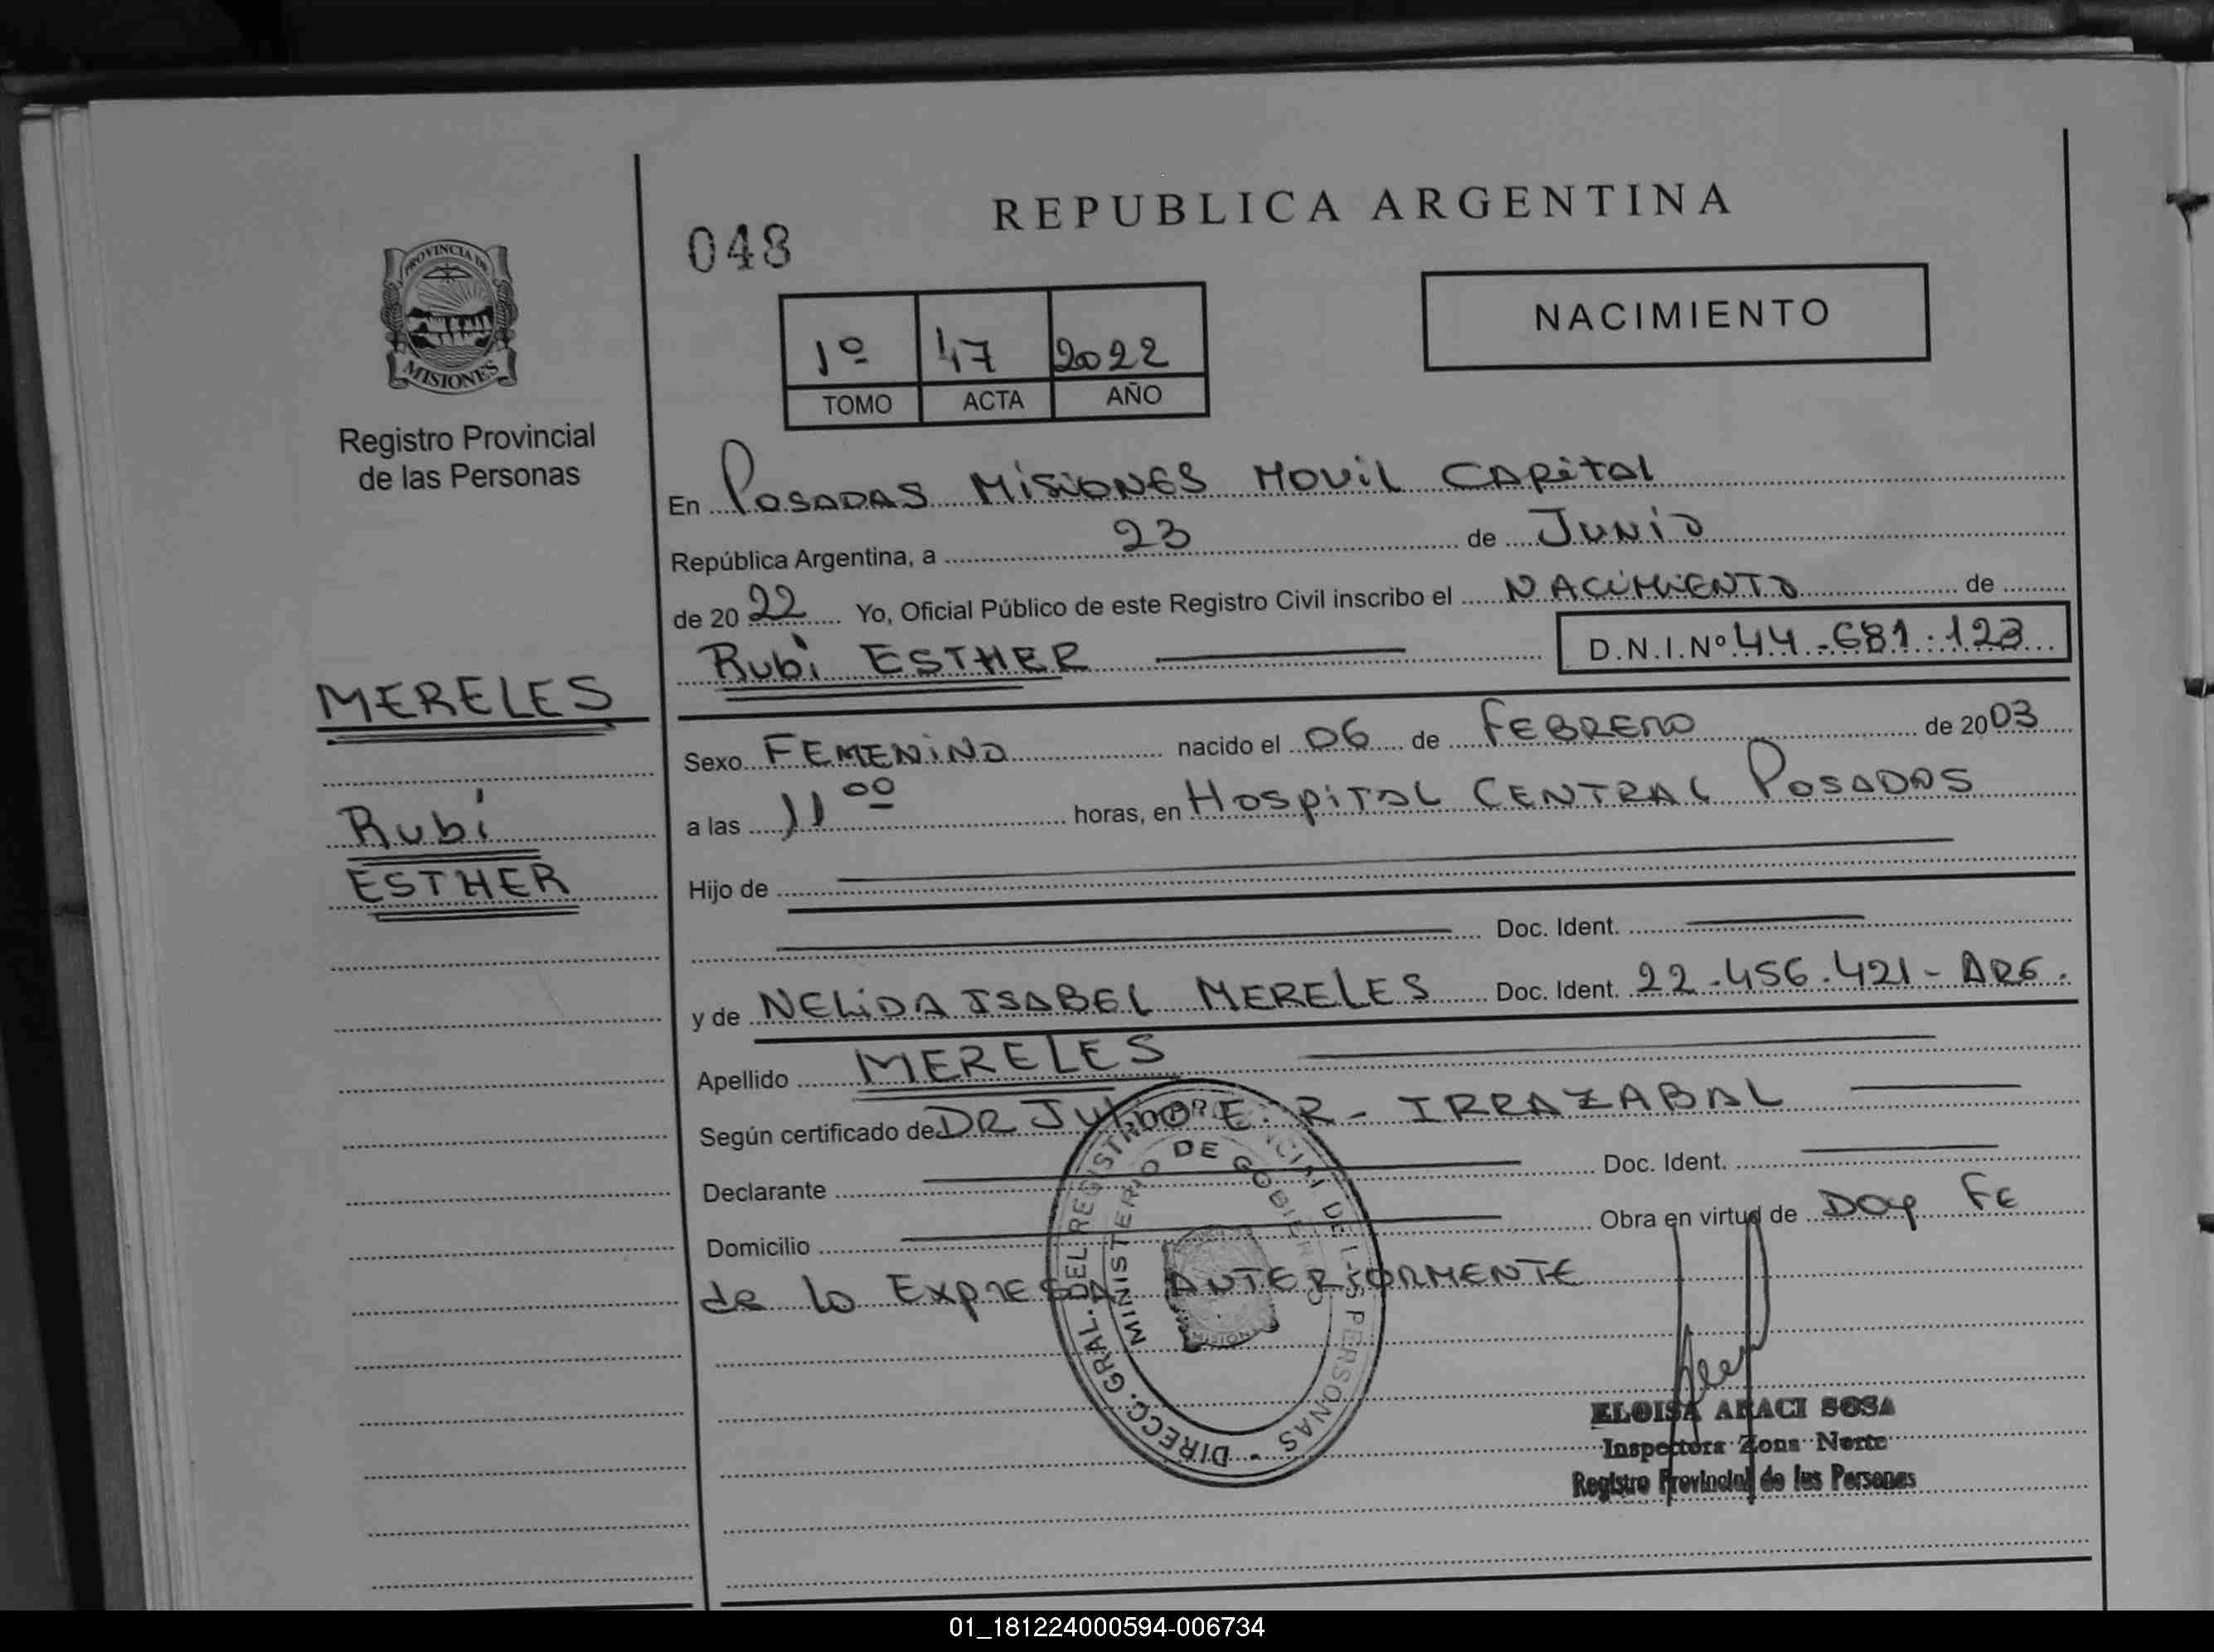 REPUBLICA ARGENTINA
048
NACIMIENTO
1º 47 2022
TOMO ACTA AÑO
PROVINCIA DE
MISIONES
Registro Provincial
de las Personas
MERELES
Rubí
ESTHER
En Posadas Misiones Movil Capital
República Argentina, a 23 de Junio
de 2022 Yo, Oficial Público de este Registro Civil inscribo el NACIMIENTO de
Rubi ESTHER D.N.I.Nº 44.681.123
Sexo FEMENINO nacido el 06 de FEBRERO de 2003
a las 11 00 horas, en HOSPITAL CENTRAL POSADAS
Hijo de
Doc. Ident.
y de NELIDA ISABEL MERELES Doc. Ident. 22.456.421 - ARG.
Apellido MERELES
Según certificado de DR JULIO E. R. IRRAZABAL
Declarante Doc. Ident.
Domicilio Obra en virtud de Doy FE
de lo Expresa ANTERIORMENTE
DIRECC. GRAL. DEL REGISTRO PROVINCIAL DE LAS PERSONAS -
MINISTERIO DE GOBIERNO
ELOISA ARACI SOSA
Inspectora Zona Norte
Registro Provincial de las Personas
01_181224000594-006734